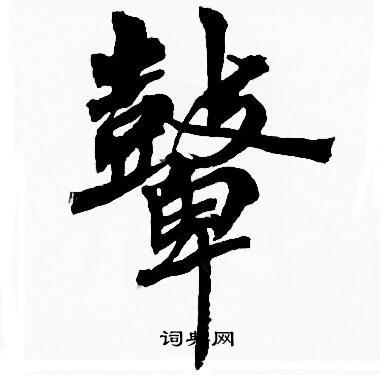 鼙
词典网